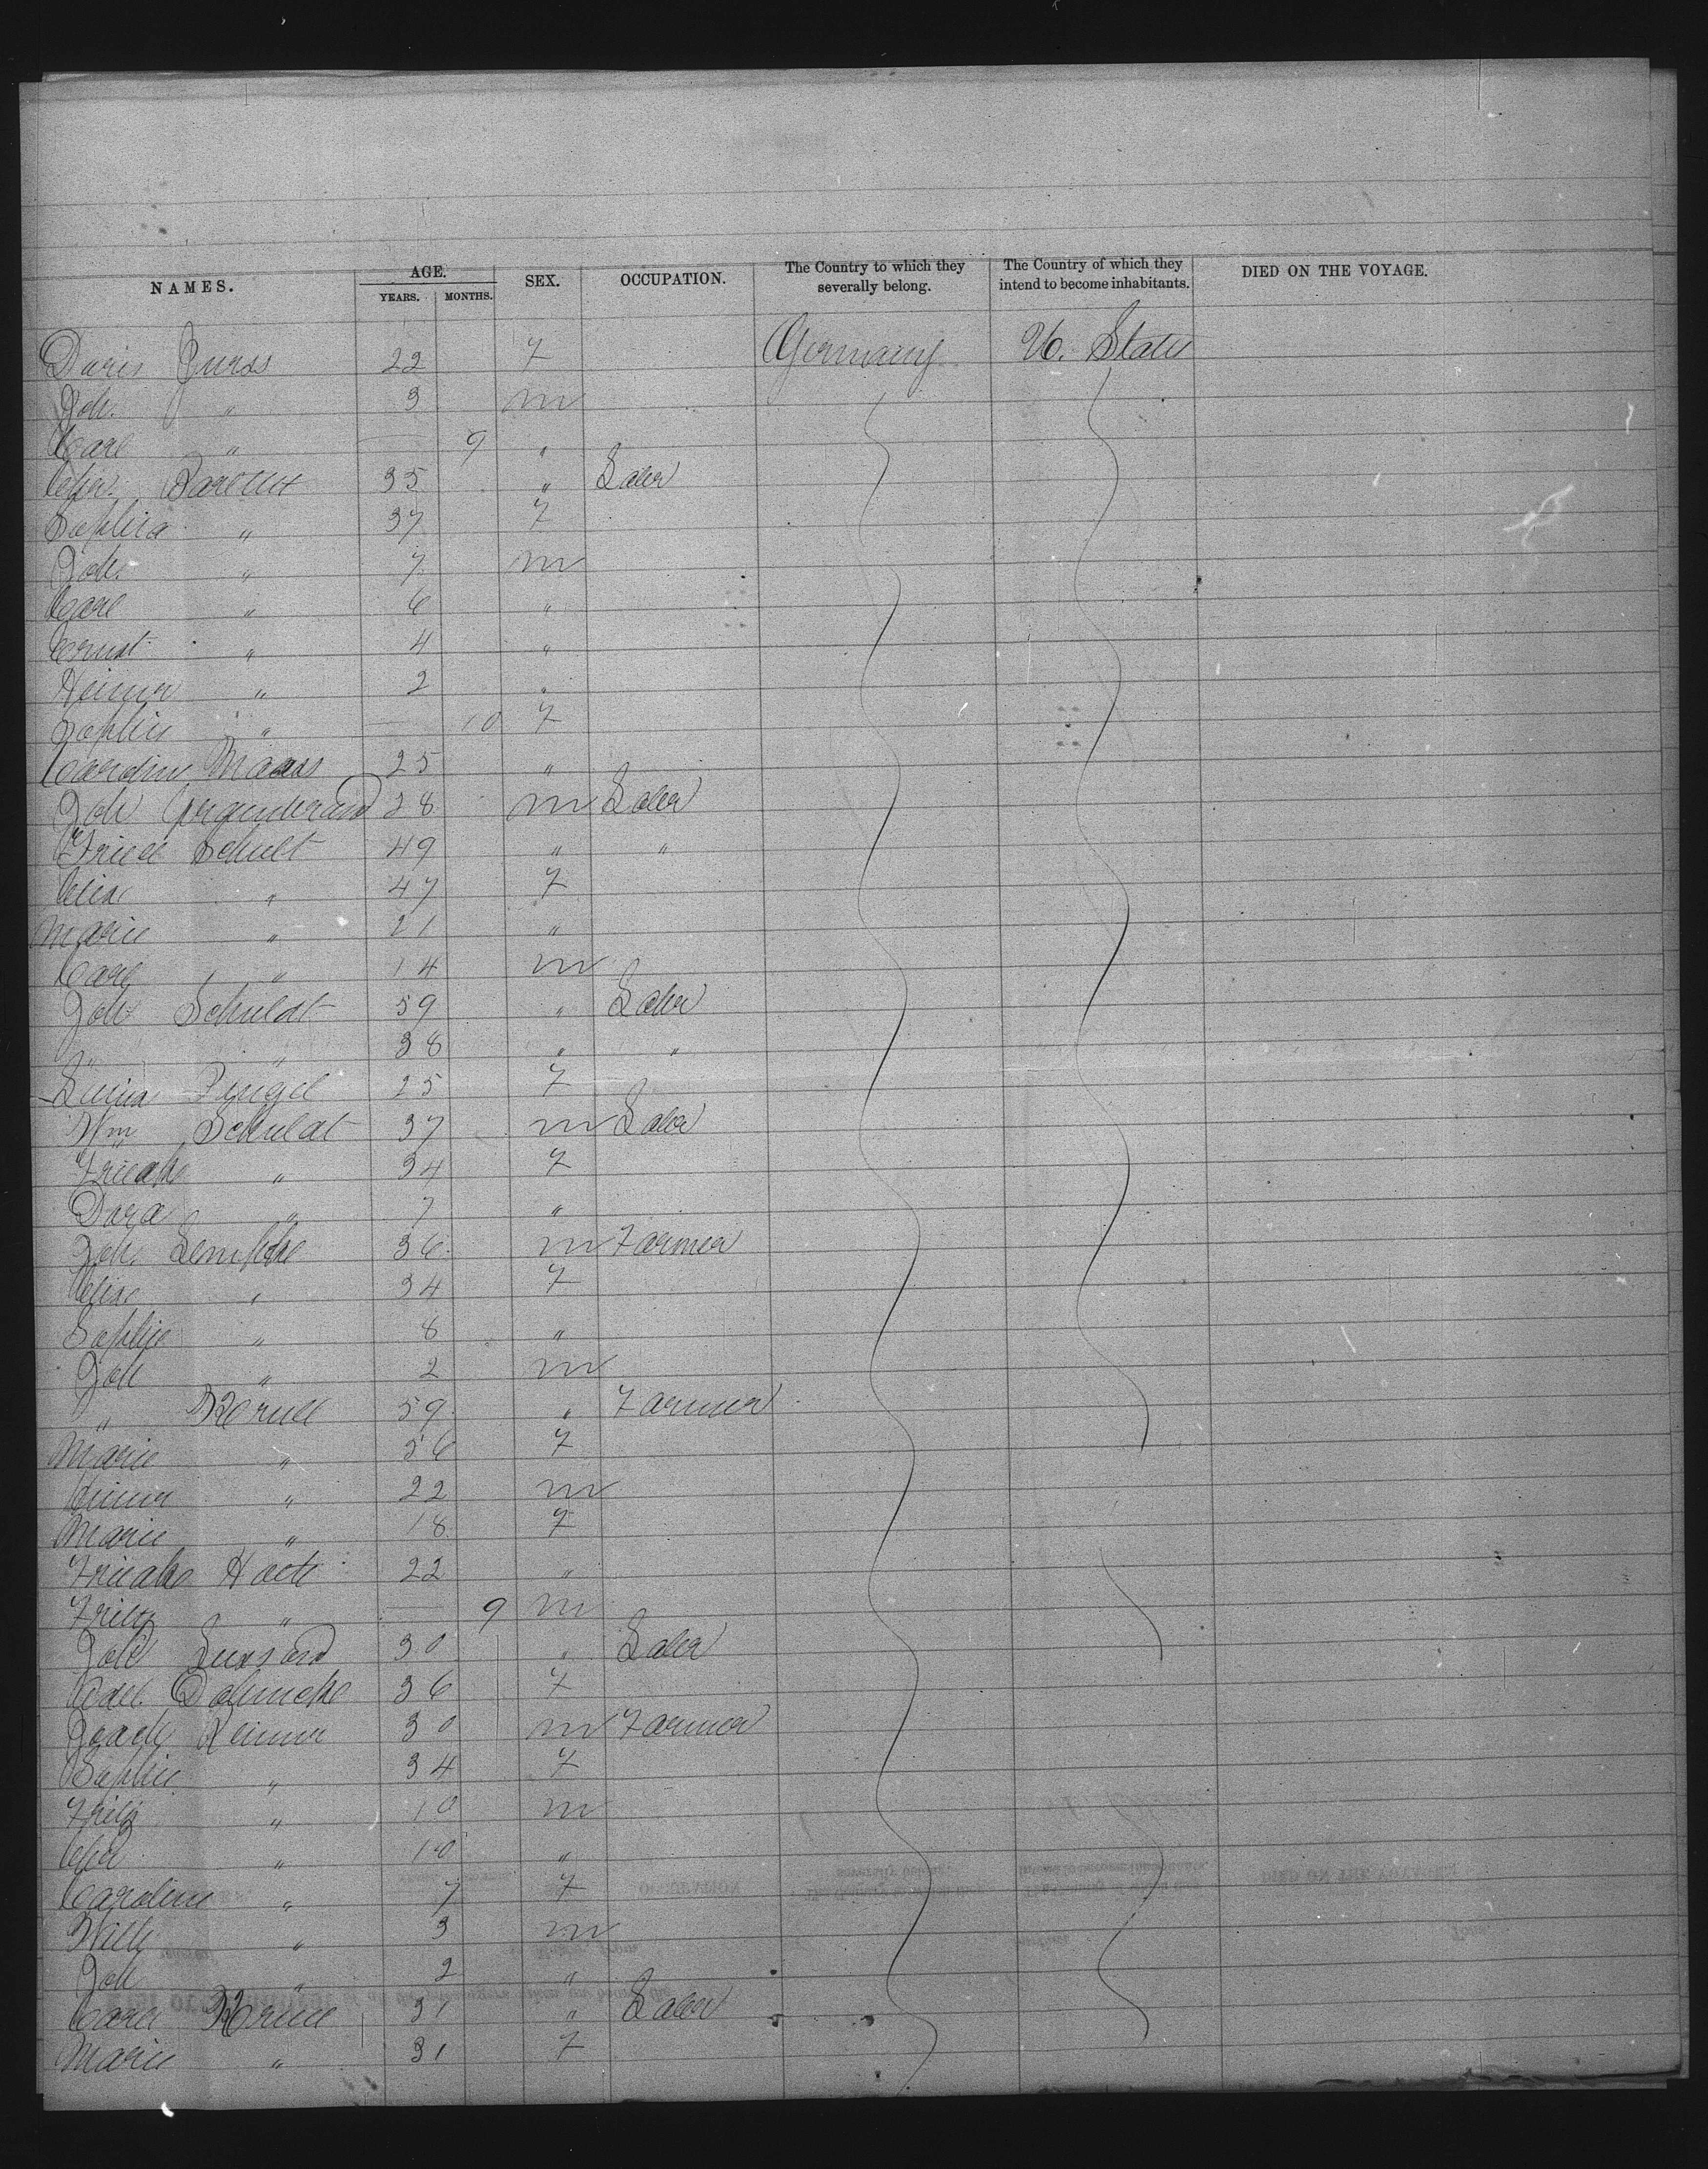 NAMES. AGE. YEARS. MONTHS. SEX. OCCUPATION. The Country to which they severally belong. The Country of which they intend to become inhabitants. DIED ON THE VOYAGE.
Doris 22 F Germany U. States
Joh. " 3 m
Carl " — 9 "
Chr. 35 " Labr
Sophia " 37 F
Joh. " 7 m
Carl " 6 "
Ernst " 4 "
Heinr " 2 "
Sophie " — 10 F
Carolin Maass 25 "
Joh 28 m Labr
Fried Schult 49 " "
Elise " 47 F
Marie " 21 "
Carl " 14 m
Joh Schuldt 59 " Labr
" " 38 " "
Luisa Pingel 25 F
Wm Schuldt 37 m Labr
Friedke " 34 F
Dora " 7 "
Joh. Lemkke 36 m Farmer
Elise " 34 F
Sophie " 8 "
Joh " 2 m
" 59 " Farmer
Marie " 56 F
Heinr " 22 m
Marie " 18 F
Friedke 22 "
Fritz " — 9 m
Joh 30 " Labr
36 F
Joach Reimer 30 m Farmer
Sophie " 34 F
Fritz " 10 m
Chr " 10 "
Caroline " 7 F
Willy " 3 m
Joh " 2 "
Carl 31 " Labr
Marie " 31 F